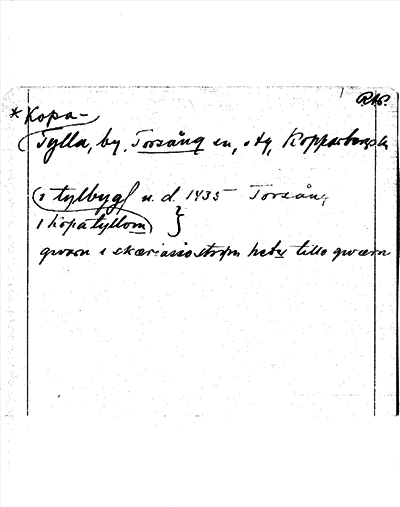 RAP.
* Kopa-
Tylla, by, Torsång sn, Kopparbergs l.
i tylbyg u. d. 1435 Torsång
i kopatyllom }
qwærn i skæriasio strøm heter tillo qwærn